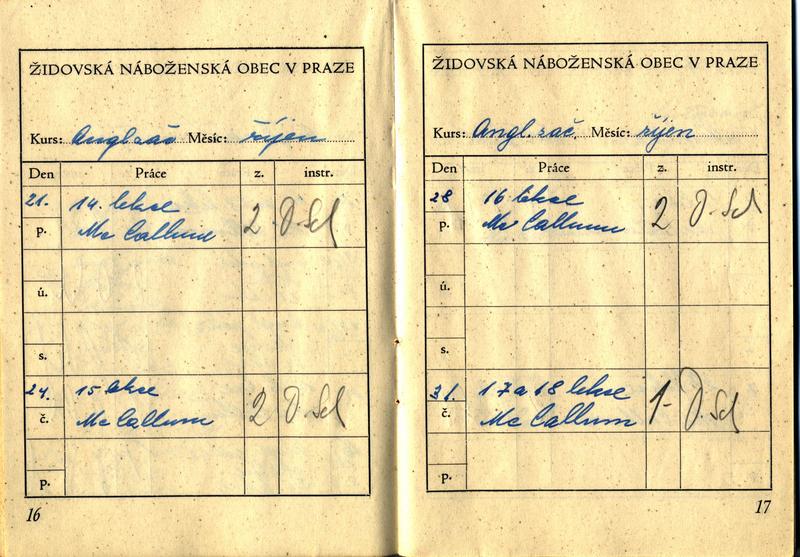 ŽIDOVSKÁ NÁBOŽENSKÁ OBEC V PRAZE
Kurs: Angl. zač Měsíc: říjen
Den Práce z. instr.
21. 14. lekse
p. Mc Callum 2 D. Sd
ú.
s.
24. 15 lekse
č. Mc Callum 2 D. Sd
p.
16
ŽIDOVSKÁ NÁBOŽENSKÁ OBEC V PRAZE
Kurs: Angl. zač. Měsíc: říjen
Den Práce z. instr.
28 16 lekse
p. Mc Callum 2 D. Sd
ú.
s.
31. 17 a 18 lekse
č. Mc Callum 1- D. Sd
p.
17